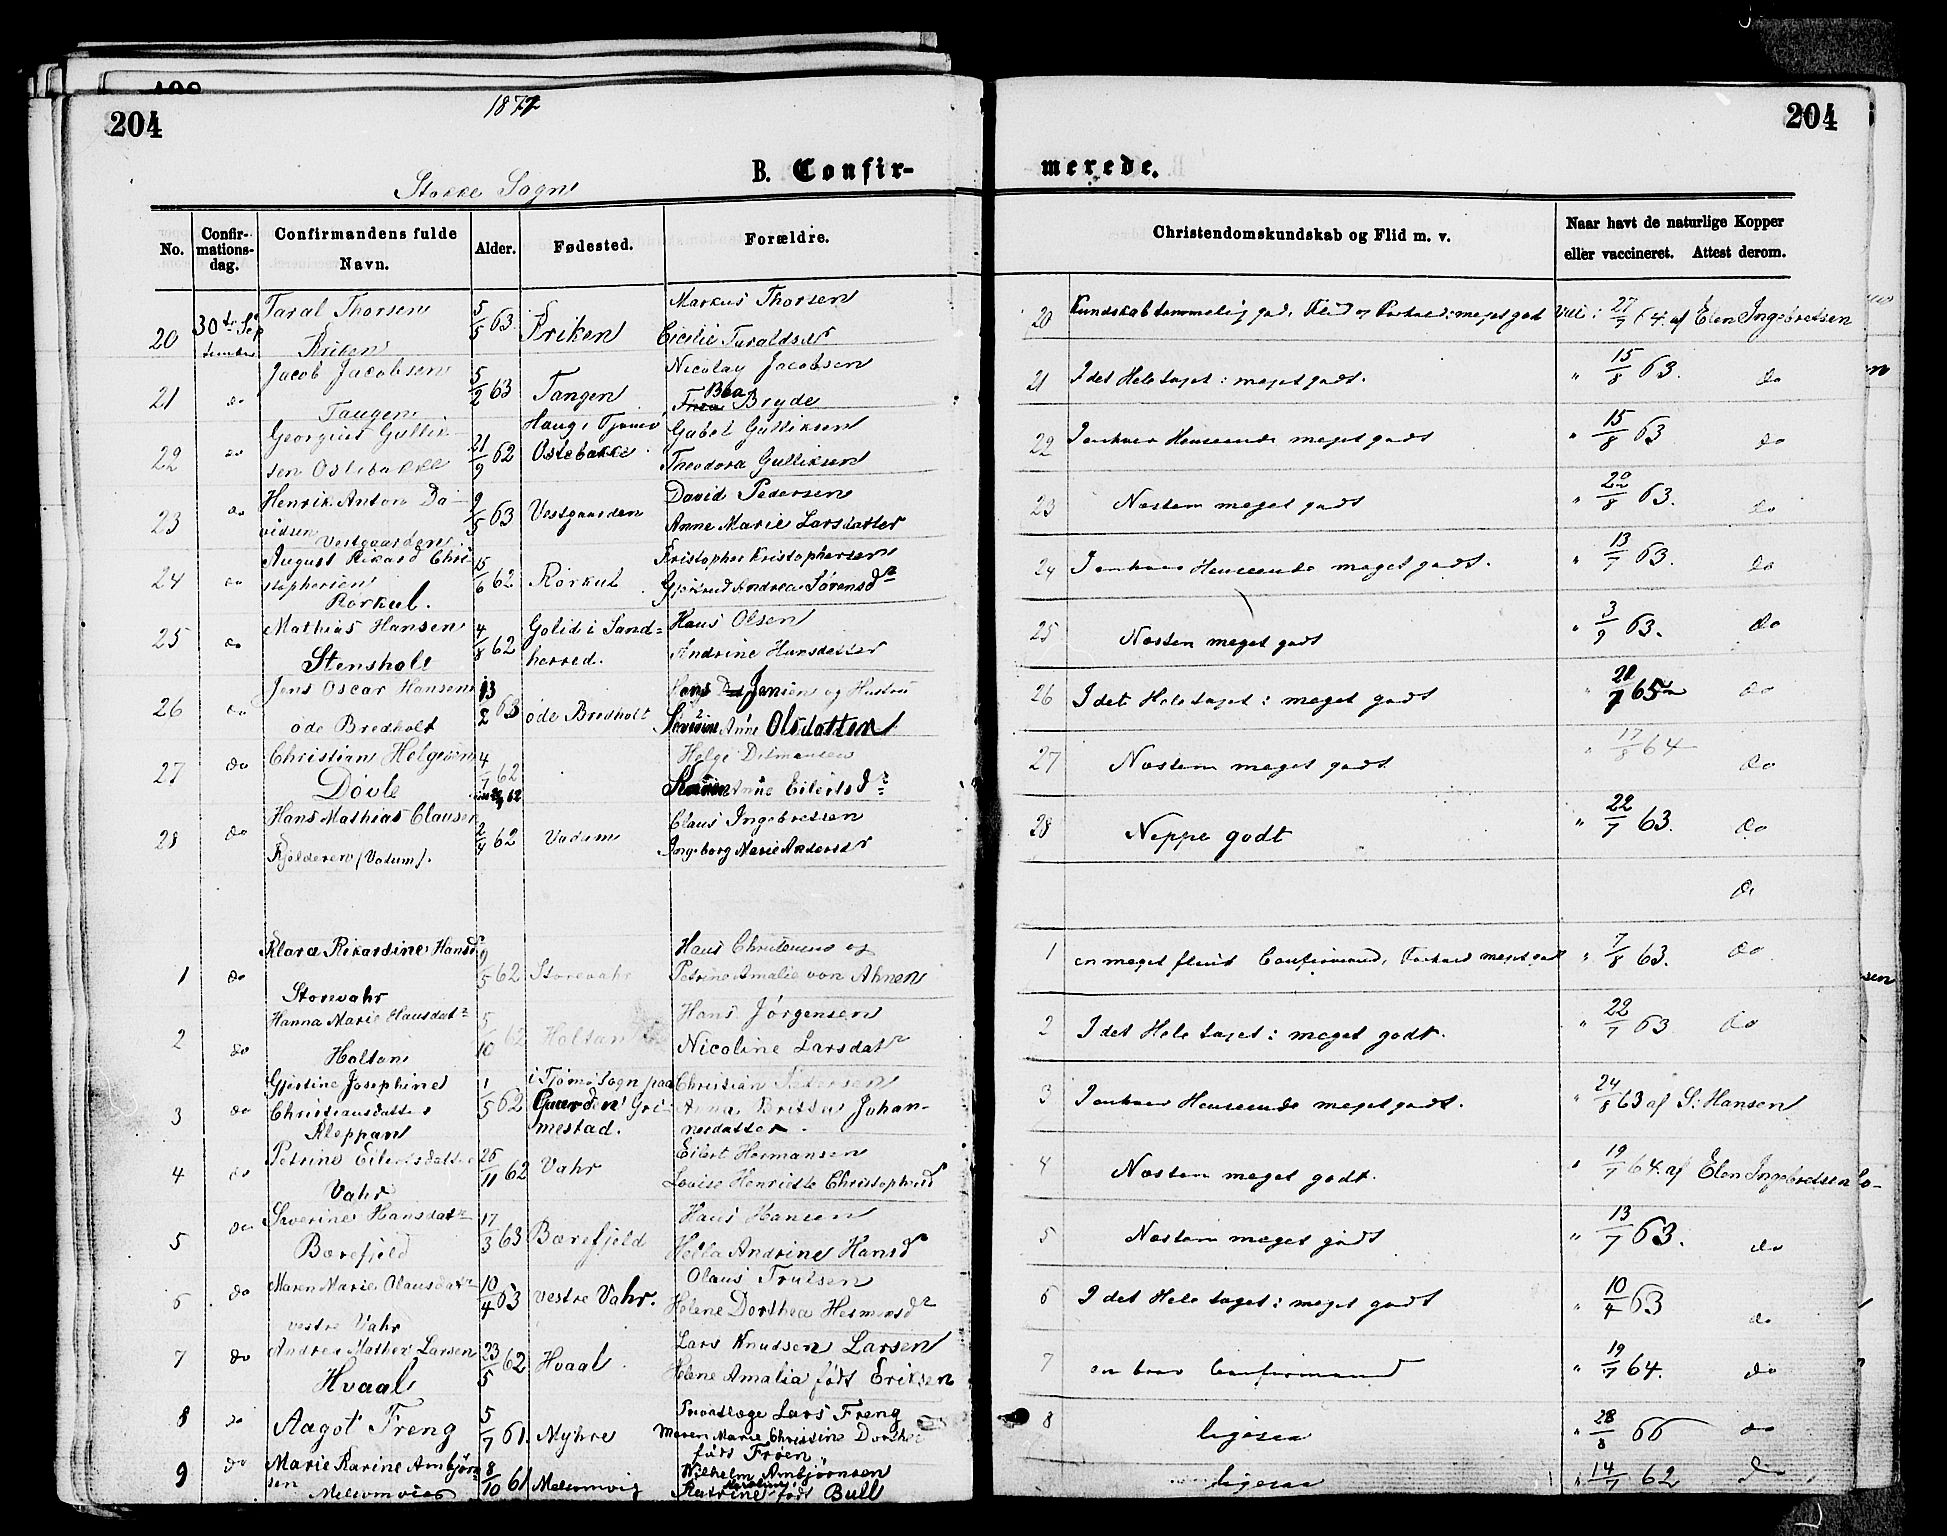 204
1877
204
B. Confir-
merede.
Stokke Sogn
No.
Confir-
mations-
dag.
Confirmandens fulde
Navn.
Alder.
Fødested.
Forældre.
Christendomskundskab og Flid m. v.
Naar havt de naturlige Kopper
eller vaccineret. Attest derom.
20 30te Sep
tember
Taral Thorsen
5/5 63
Markus Thorsen
Cecilie Taraldsdr
20 Kundskab temmelig god, Flid og Forhold: meget godt
27/7 64. af Elen Ingebretsen
21 do
Jacob Jacobsen
Tangen
5/2 63
Tangen
Nicolay Jacobsen
Bryde
21 I det Hele taget: meget godt.
" 15/8 63. do
22 do
Georgius Gullik-
sen Ostebakke
21/9 62
Haug i Tjømø
Ostebakke
Gabel Gulliksen
Theodora Gulliksen
22 I enhver Henseende meget godt
" 15/8 63 do
23 do
Henrik Anton Da-
vidsen Vestgaarden
9/5 63
Vestgaarden
David Pedersen
Anne Marie Larsdatter
23 Næsten meget godt
" 20/8 63. do
24 do
August Rikard Chri-
stophersen
Rørkul.
15/6 62
Rørkul
Kristopher Kristophersen
Gjertrud Andrea Sørensdr
24 I enhver Henseende meget godt.
" 13/7 63. do
25 do
Mathias Hansen
Stensholt
4/8 62
Golid i Sand-
herred.
Hans Olsen
Andrine Hansdatter
25 Næsten meget godt
" 3/9 63. do
26 do
Jens Oscar Hansen
øde Bredholt
13/2 63
øde Bredholt
Jensen og Hustru
Anne Olsdatter
26 I det Hele taget: meget godt
65 do
27 do
Christian Helgesen
Dövle
4/7 62
Helge Ditmansen
Anne Eilertsdr
27 Næsten meget godt
" 17/8 64 do
28 do
Hans Mathias Clausen
Kjelderen (Vadum).
2/4 62
Vadum
Claus Ingebretsen
Ingeborg Marie Andersdr
28 Neppe godt
" 22/7 63. do
do
1 do
Klara Rikardine Hansdr
Storevahr
9/5 62
Storevahr
Hans Christensen og
Petrine Amalie von Ahnen
1 en meget flink Confirmand, Forhold meget godt
" 7/8 63. do
2 do
Hanna Marie Hansdatr
Holtan
5/10 62
Holtan
Hans Jørgensen
Nicoline Larsdatr
2 I det Hele taget: meget godt.
" 22/7 63 do
3 do
Gjertine Josephine
Christiansdatter
Kleppan
1/5 62
i Tjømø Sogn paa
Gaarden Gri-
mestad.
Christian Pedersen
Anna Britta Johan-
nesdatter.
3 I enhver Henseende meget godt.
" 24/8 63 af S. Hansen
4 do
Petrine Eilertsdatter
Vahr
26/11 62
Vahr
Eilert Hermansen
Lovise Henriette Christophersd
4 Næsten meget godt.
" 19/7 64. af Elen Ingebretsen
5 do
Severine Hansdatr
Bærefjeld
17/3 63
Bærefjeld
Hans Hansen
Hella Andrine Hansdr
5 Næsten meget godt
" 13/7 63. do
6 do
Maren Marie Olausdatr
vestre Vahr
10/4 63
vestre Vahr.
Olaus Trulsen
Helene Dorthea Hermansdr
6 I det Hele taget: meget godt
" 10/4 63 do
7 do
Andrea Mathea Larsen
Hvaal
23/5 62
Hvaal
Lars Knudsen Larsen
Helene Amalia født Eriksen
7 en brav Confirmand
" 19/7 64. do
8 do
Aagot Freng
5/7 61.
Myhre
Lars Freng
Maren Marie Christine Dorthea
født Frøen
8 ligesaa
" 28/8 66 do
9 do
Marie Karine Ambjørn
sen
Melsomvig
8/10 61
Melsomvig
Wilhelm Ambjørnsen
Katrine født Bull
ligesaa
" 14/7 62 do